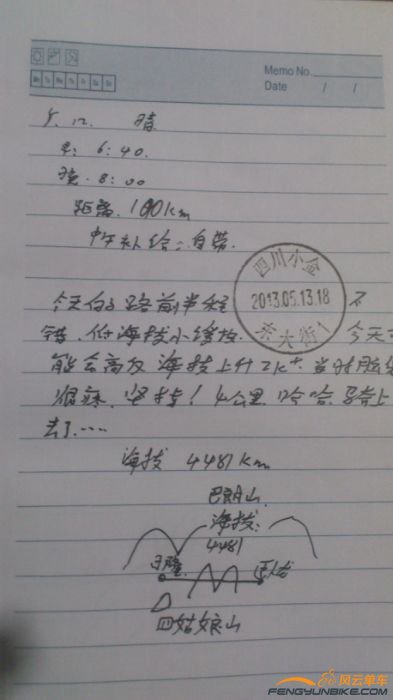 Memo No.
Date / /
5.12. 晴
早: 6:40.
晚. 8:00
距离. 100km
中午补给: 自带.
四川小金
2013.05.13.18
东大街1
今天的路前半程 不
错、低海拔小缓坡. 今天
能会高反 海拔上升2k+. 当时脸
很麻. 坚持! 4公里 哈哈 骑上
去了……
海拔 4481km
巴朗山
海拔:
4481
日隆
四姑娘山
风云单车
FENGYUNBIKE.COM